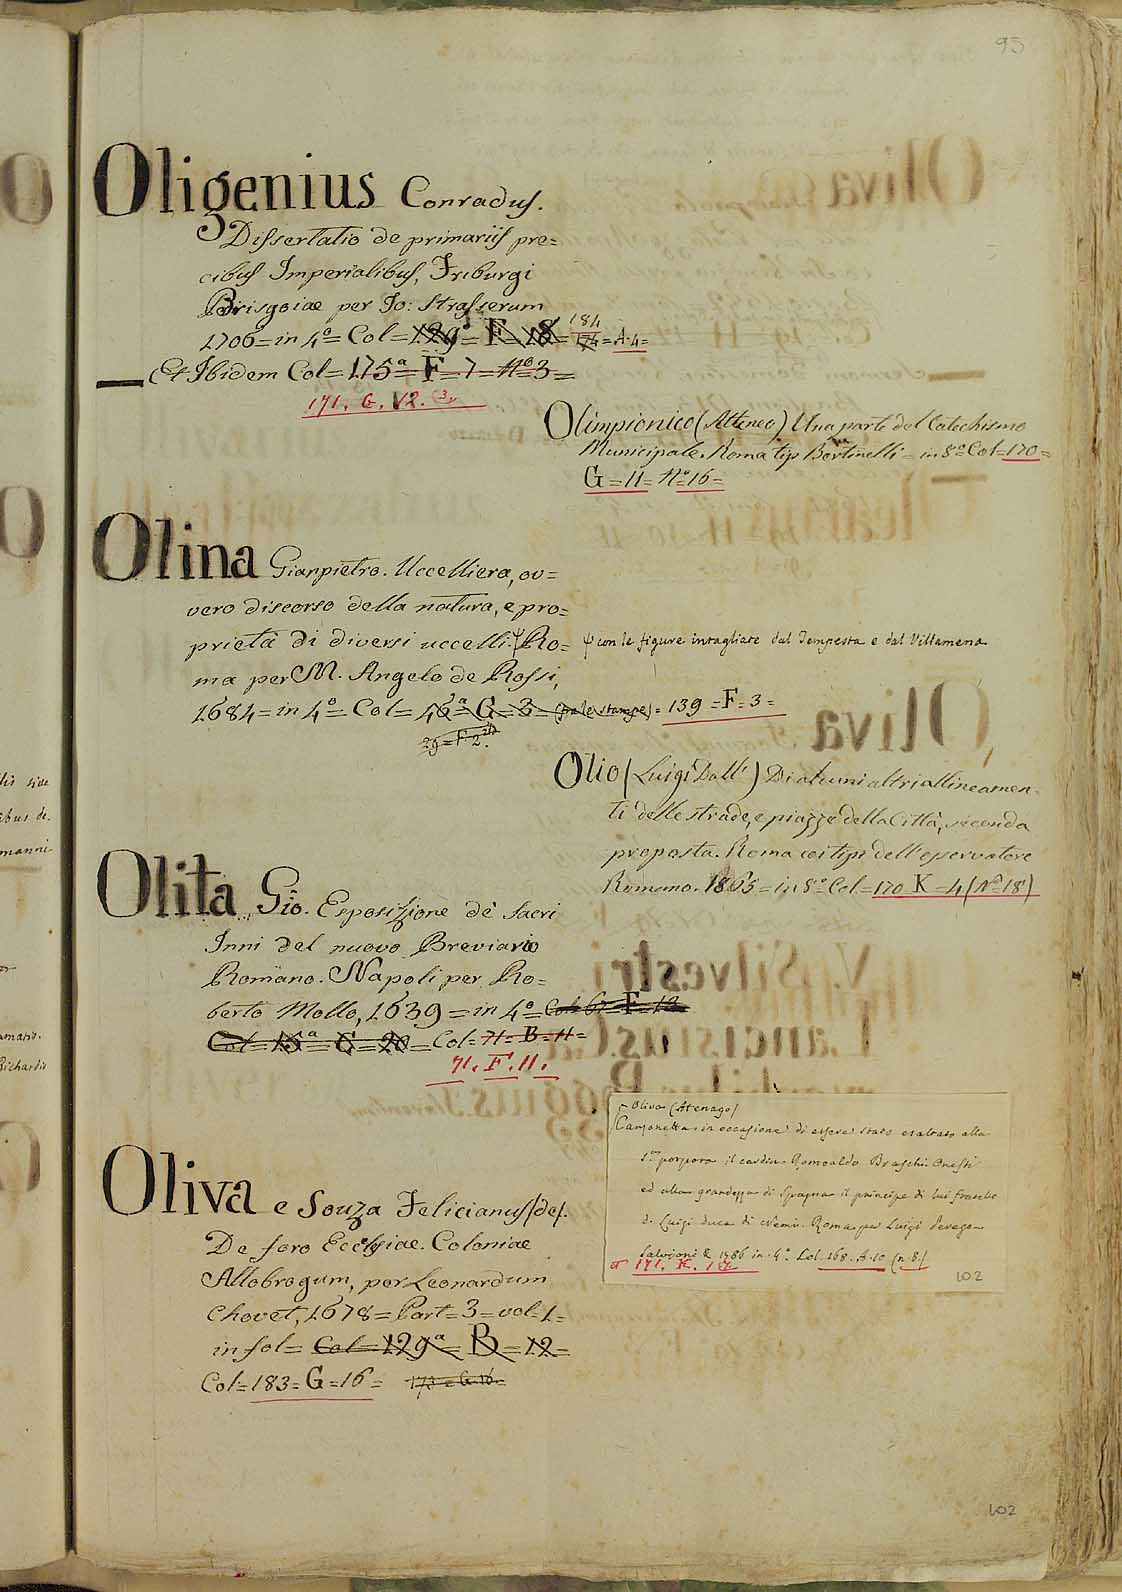 95
Oligenius Conradus.
Dissertatio de primariis pre=
cibus Imperialibus, Friburgi
Brisgoiae per Jo: Strasserum
1706= in 4º= Col= 129ª= F= 18= 174 184 = A·4=
Et Ibidem Col= 175ª= F= 7= Nº 3=
171. G. 12. 3
Olimpionico (Atteneo) Una parte del Catechismo
Municipale. Roma tip Bertinelli = in 8º= Col= 170=
G = 11= Nº 16=
Olina Gianpietro. Uccelliera, ov=
vero discorso della natura, e pro=
prietà di diversi uccelli. ψ Ro=
ψ con le figure intagliate dal Tempesta e dal Villamena
ma per M. Angelo de Rossi,
1684= in 4º= Col= 46ª= G= 3= = 139 = F= 3=
29= F. 2.
Olio (Luigi Dall') Di alcuni altri allineamen=
ti delle strade, e piazze della Città, seconda
proposta. Roma coi tipi dell'osservatore
Romano. 1865= in 8º= Col= 170 K= 4 (Nº 18)
Olita Gio. Esposizione de' Sacri
Inni del nuovo Breviario
Romano. Napoli per Ro=
berto Mollo, 1639= in 4º Col= 67= F= 12
Col= 15ª= G= 20= Col= 71= B= 11=
71. F. 11.
Oliva (Atenago)
Canzonetta in occasione di essere stato esaltato alla
S. porpora il cardin. Romoaldo Braschi Onesti
ed alla grandezza di Spagna il principe di lui fratello
D. Luigi duca di Nemi. Roma per Luigi Perego
Salvioni & 1786 in 4º. Col. 168. A. 10 (n. 8)
171. K.
102
Oliva e Souza Felicianus de.
De foro Ecclesiae. Coloniae
Allobrogum, per Leonardum
Chovet, 1678= Part= 3= vol= 1=
in fol= Col= 129ª= B= 12=
Col= 183= G= 16= 173= G. 16=
102